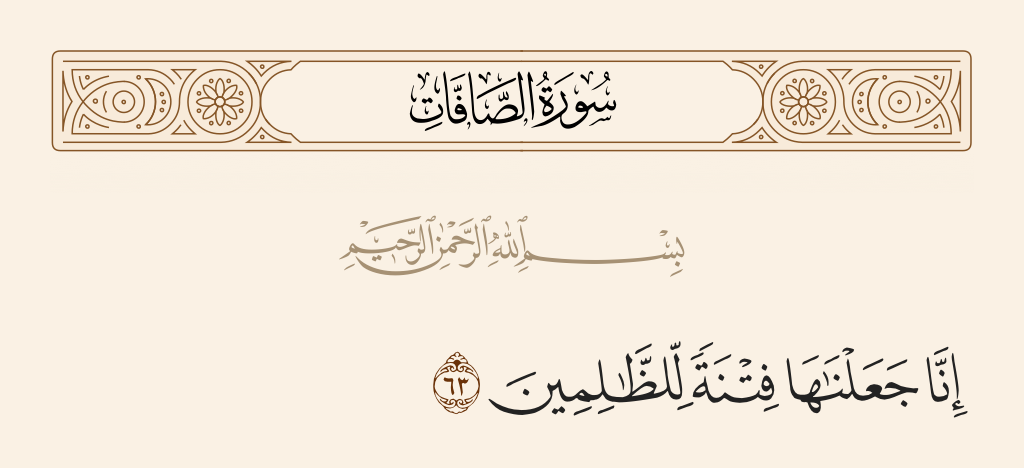 سُورَةُ الصَّافَّاتِ
بِسْمِ ٱللَّهِ ٱلرَّحْمَٰنِ ٱلرَّحِيمِ
إِنَّا جَعَلْنَٰهَا فِتْنَةً لِّلظَّٰلِمِينَ ٦٣